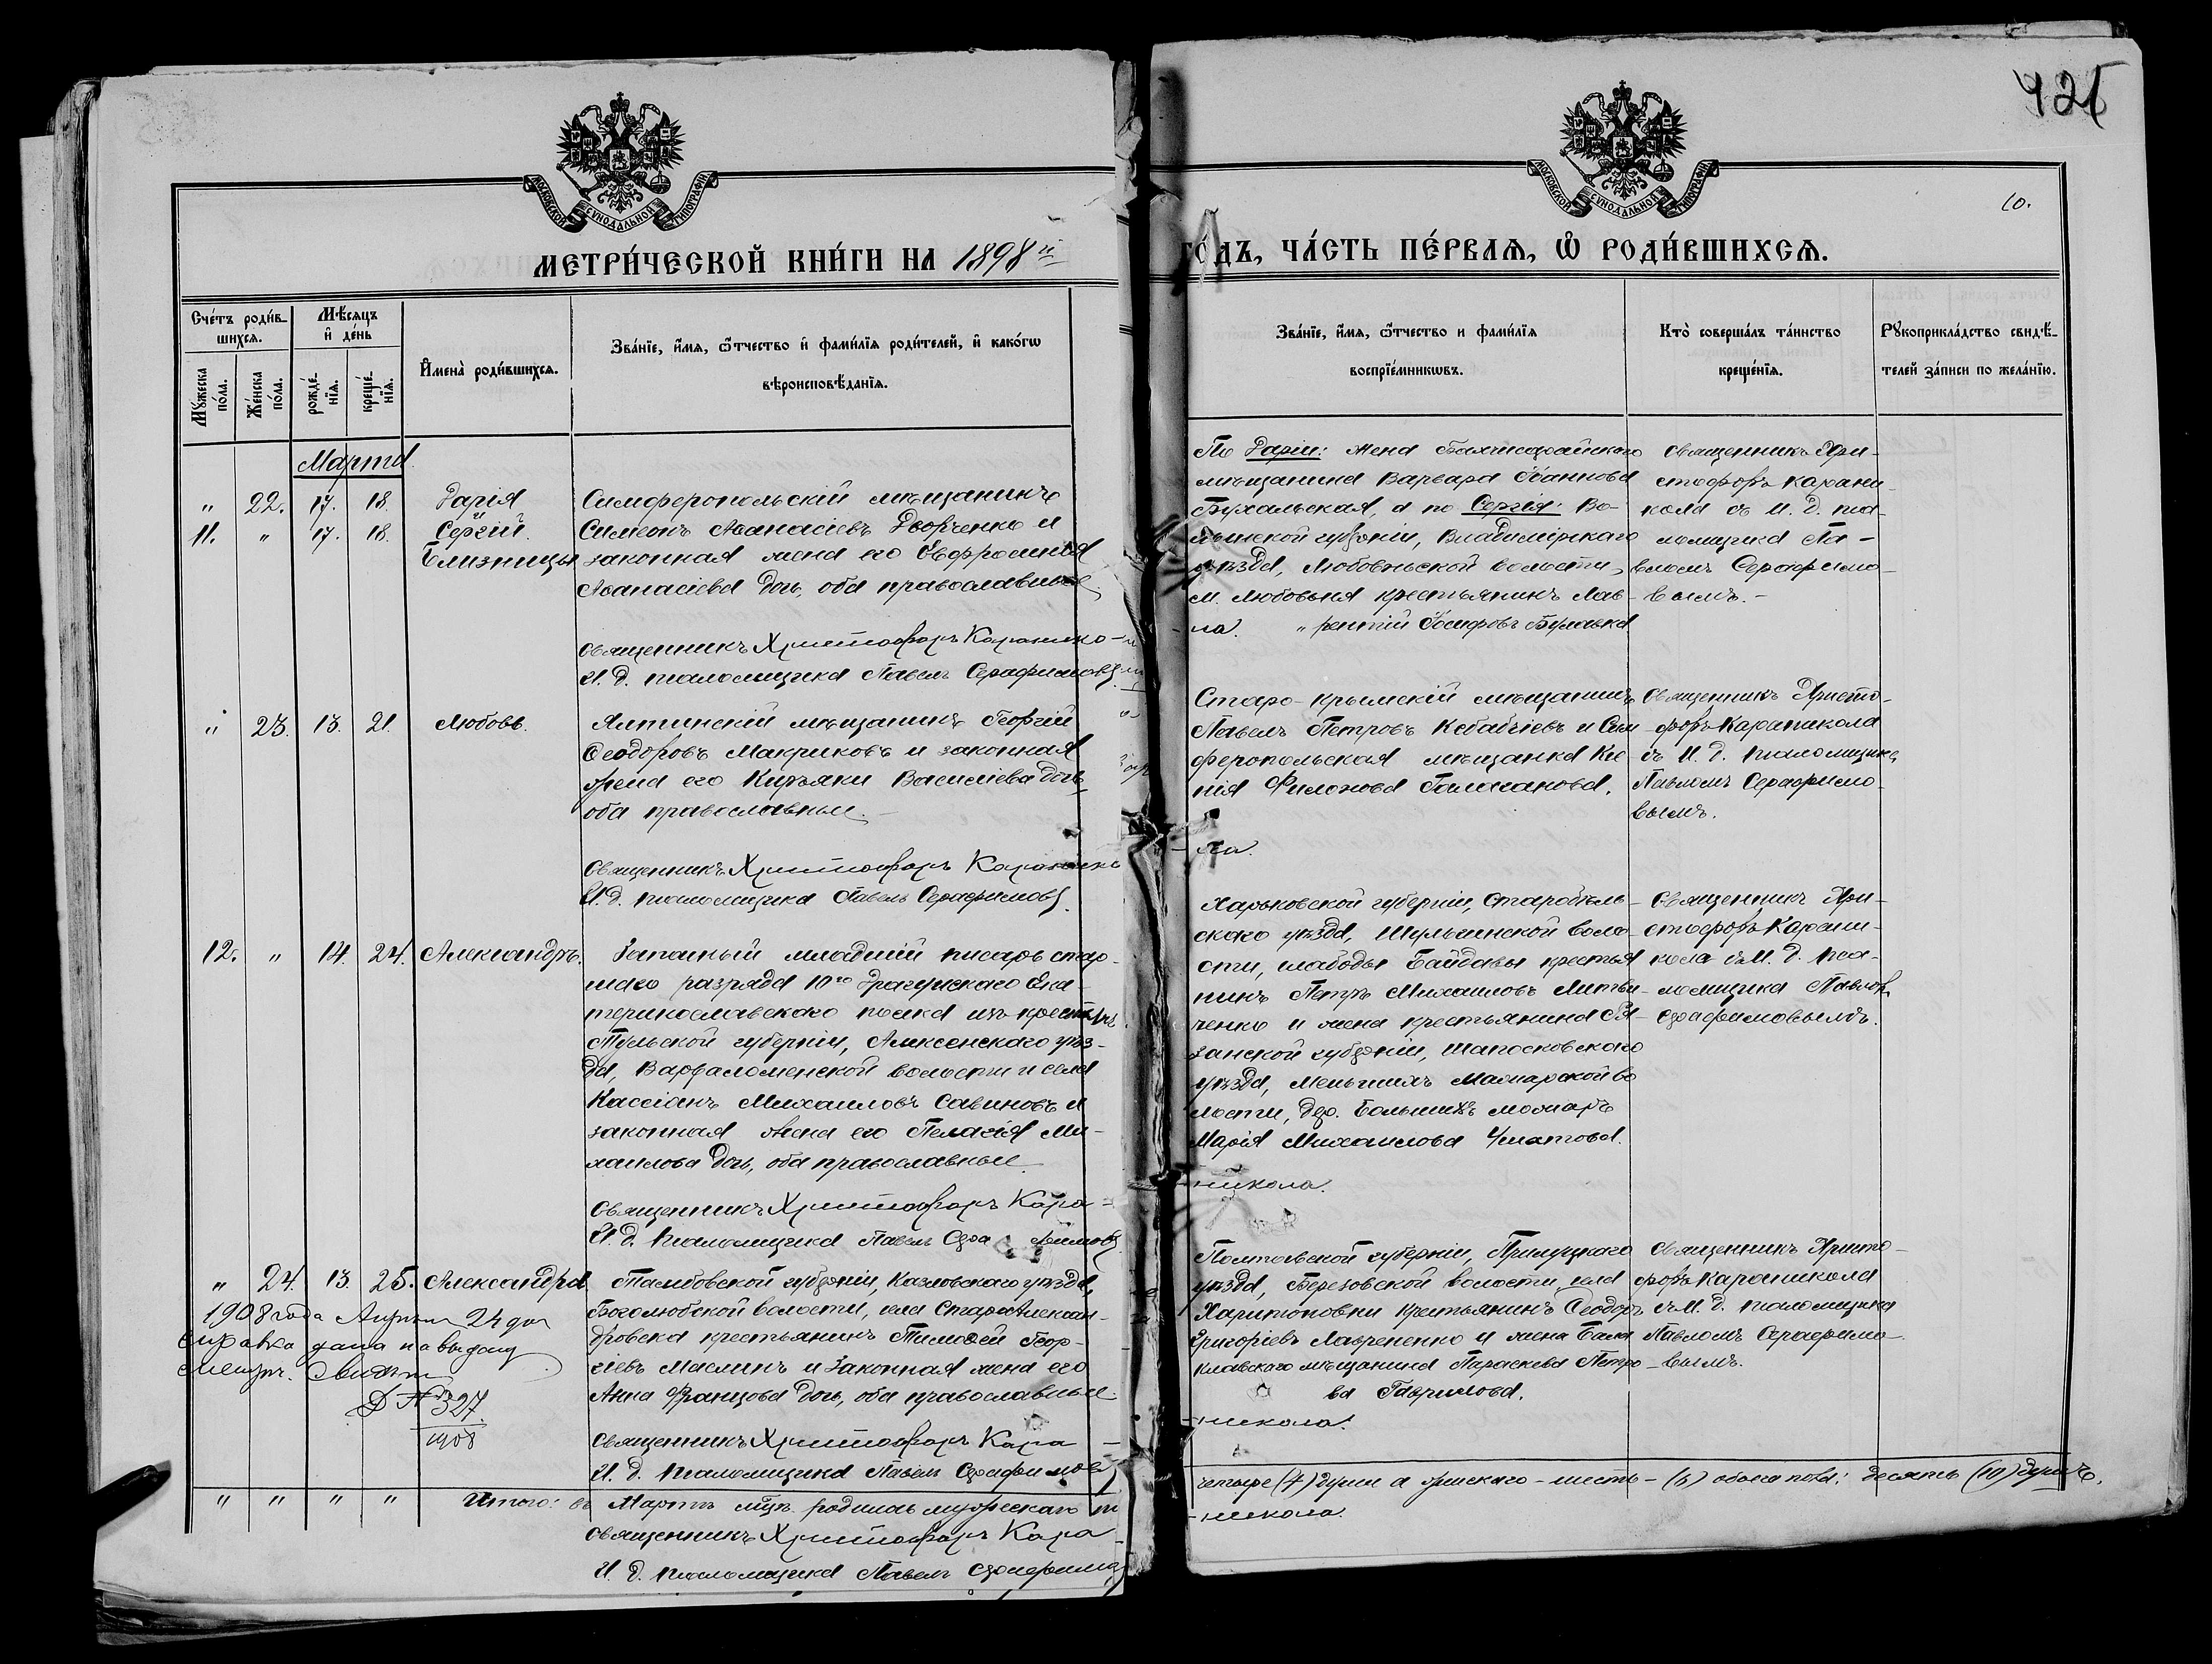 425
10.
МОСКОВСКОЙ СУНОДАЛЬНОЙ ТИПОГРАФІИ
МОСКОВСКОЙ СУНОДАЛЬНОЙ ТИПОГРАФІИ
МЕТРИ́ЧЕСКОЙ КНИ́ГИ НА 1898 й
ГО́ДЪ, ЧА́СТЬ ПЕ́РВАѦ, Ѡ РОДИ́ВШИХСѦ.
Сче́тъ роди́в-
шихсѧ.
Мꙋ́жеска по́ла.
Же́нска по́ла.
Мѣ́сѧцъ
и҆ де́нь
рожде́-
нїѧ.
креще́-
нїѧ.
И҆мена̀ роди́вшихсѧ.
Зва́нїе, и҆́мѧ, ѻ҆́тчество и҆ фами́лїѧ роди́телей, и҆ како́гѡ
вѣроисповѣ́данїѧ.
Зва́нїе, и҆́мѧ, ѻ҆́тчество и фами́лїѧ
воспрїе́мникѡвъ.
Кто̀ соверша́лъ та́инство
креще́нїѧ.
Рꙋкоприкла́дство свидѣ́-
телей за́писи по жела́нїю.
Марта
" 22. 17. 18. Дарія
11. " 17. 18. Сергій.
Близнецы
Симферопольскій мѣщанинъ
Симеонъ Аѳанасіевъ Дворченко и
законная жена его Евфросинія
Аѳанасіева дочь, оба православные
Священникъ Христофоръ Карани-
И. д. псаломщика Павелъ Серафимовъ
По Даріи: жена Бахчисарайскаго
мѣщанина Варвара Іоаннова
Бухальская, а по Сергія: Во-
лынской губерніи, Владимірскаго
уѣзда, Любовньской волости,
м. Любовьня крестьянинъ Лав-
рентій Іосифовъ Булавка
кола.
Священникъ Хри-
стофоръ Карани-
кола съ И. д. пса-
ломщика Па-
вломъ Серафимо-
вымъ.-
" 23. 13. 21. Любовь.
Ялтинскій мѣщанинъ Георгій
Ѳеодоровъ Макриковъ и законная
жена его Киръяки Василіева дочь
оба православные.-
Священникъ Христофоръ Караникo
И. д. псаломщика Павелъ Серафимовъ
Старо-Крымскій мѣщанинъ
Павелъ Петровъ Кебабчіевъ и Сим-
феропольская мѣщанка Ксе-
нія Филонова Балабанова.
-ла.
Священникъ Христо-
форъ Караникола
съ И. д. псаломщика
Павломъ Серафимо-
вымъ.
12. " 14. 24. Александръ.
Запасный младшій писарь стар-
шаго разряда 10го Драгунскаго Ека-
теринославскаго полка изъ крестьянъ
Тульской губерніи, Алексенскаго уѣз-
да, Варфаломенской волости и села
Кассіанъ Михаиловъ Савиновъ и
законная жена его Пелагія Ми-
хаилова дочь, оба православные
Священникъ Христофоръ Кара-
И. д. псаломщика Павелъ Серафимовъ
Харьковской губерніи, Старобѣль-
скаго уѣзда, Шульгинской воло-
сти, слободы Байдовы крестья-
нинъ Петръ Михаиловъ Литви-
ченко и жена крестьянина Ря-
занской губерніи, Шапковскаго
уѣзда, Меньшихъ Можарской во-
лости, дер. Большихъ Можаръ
Марія Михаилова
-никола.
Священникъ Хри-
стофоръ Карани-
кола съ И. д. пса-
ломщика Павломъ
Серафимовымъ.
" 24. 13. 25. Александра
Тамбовской губерніи, Козловскаго уѣзда,
Боголюбской волости, села Староалексан-
дровска крестьянинъ Тимоѳей Геор-
гіевъ Маслинъ и законная жена его
Анна Францова дочь, оба православные.
Священникъ Христофоръ Кара-
И. д. псаломщика Павелъ Серафимовъ
1908 года Апрѣля 24 дня
справка дана на выдачу
метрич. Свидѣт.
Д № 327
1908
Полтавской губерніи, Прилуцкаго
уѣзда, Березовской волости, села
Харитоновки крестьянинъ Ѳеодоръ
Григоріевъ Лавренко и жена Бала-
клавскаго мѣщанина Параскева Петро-
ва Гаврилова.
-никола.
Священникъ Христо-
форъ Караникола
съ И. д. псаломщика
Павломъ Серафимо-
вымъ.
" " " " Итого: въ Мартѣ мѣц. родилось мужескаго п
четыре (4) души а женскаго-шесть-(6) обоего пола: десять (10) душъ.
Священникъ Христофоръ Кара-
-никола.
И. д. псаломщика Павелъ Серафимовъ